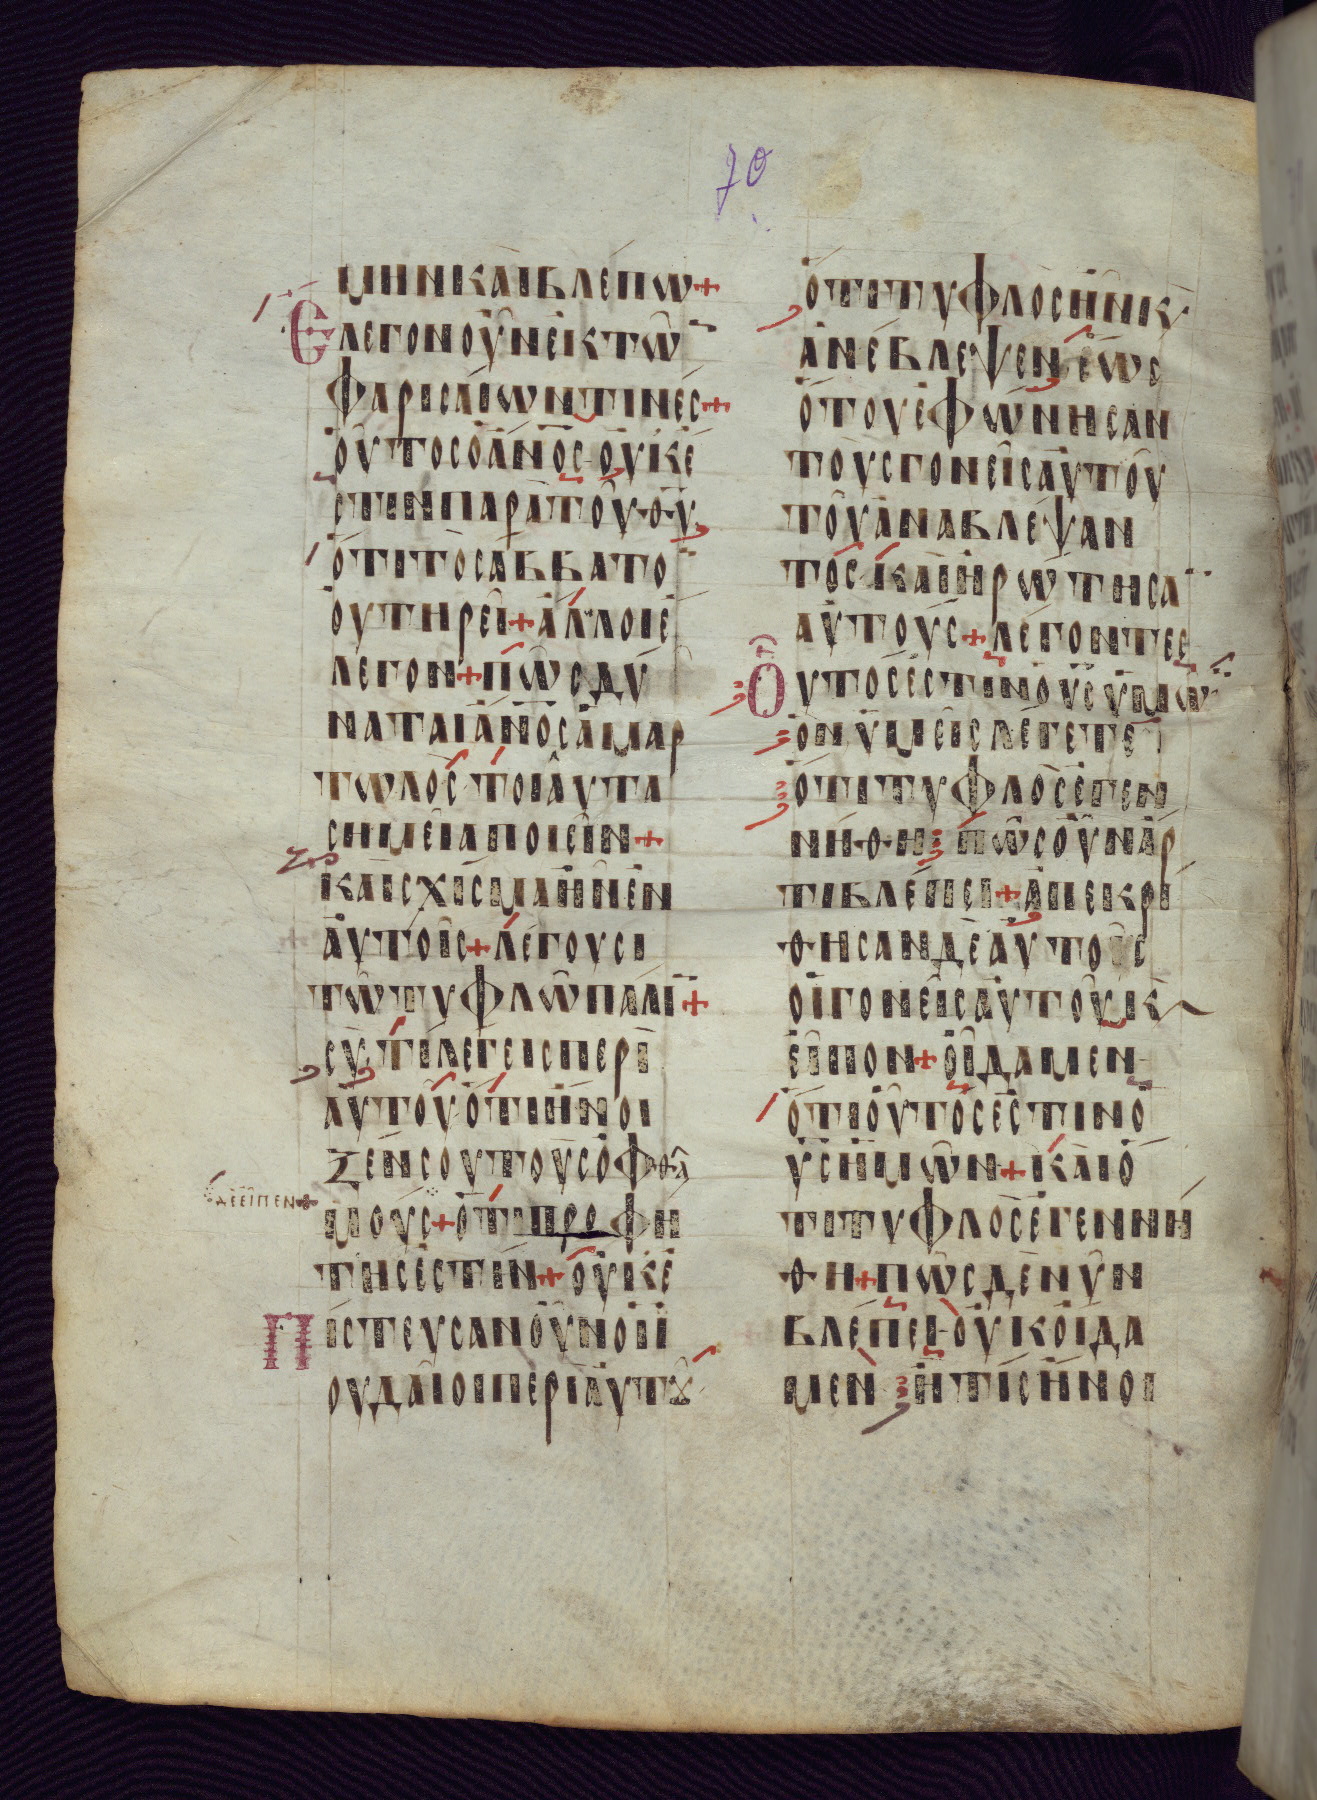 70
ΜΗΝ ΚΑΙ ΒΛΕΠΩ+
ΕΛΕΓΟΝ ΟΥΝ ΕΚ ΤΩ̅
ΦΑΡΙΣΑΙΩΝ ΤΙΝΕΣ+
ΟΥΤΟΣ Ο ΑΝΟΣ ΟΥΚ Ε
ΣΤΙΝ ΠΑΡΑ ΤΟΥ ΘΥ
ΟΤΙ ΤΟ ΣΑΒΒΑΤΟ̅
ΟΥ ΤΗΡΕΙ+ΑΛΛΟΙ Ε
ΛΕΓΟΝ+ΠΩΣ ΔΥ
ΝΑΤΑΙ ΑΝΟΣ ΑΜΑΡ
ΤΩΛΟΣ ΤΟΙΑΥΤΑ
ΣΗΜΕΙΑ ΠΟΙΕΙΝ+
ΚΑΙ ΣΧΙΣΜΑ ΗΝ ΕΝ
ΑΥΤΟΙΣ+ΛΕΓΟΥΣΙ
ΤΩ ΤΥΦΛΩ ΠΑΛΙ̅+
ΣΥ ΤΙ ΛΕΓΕΙΣ ΠΕΡΙ
ΑΥΤΟΥ ΟΤΙ ΗΝΟΙ
ΞΕΝ ΣΟΥ ΤΟΥΣ ΟΦΘΑΛ
Ο ΔΕ ΕΙΠΕΝ+
ΜΟΥΣ+ΟΤΙ ΠΡΟΦΗ
ΤΗΣ ΕΣΤΙΝ+ΟΥΚ Ε
ΠΙΣΤΕΥΣΑΝ ΟΥΝ ΟΙ Ι
ΟΥΔΑΙΟΙ ΠΕΡΙ ΑΥΤȢ
ΟΤΙ ΤΥΦΛΟΣ ΗΝ Κ
ΑΝΕΒΛΕΨΕΝ ΕΩΣ
ΟΤΟΥ ΕΦΩΝΗΣΑΝ
ΤΟΥΣ ΓΟΝΕΙΣ ΑΥΤΟΥ
ΤΟΥ ΑΝΑΒΛΕΨΑΝ
ΤΟΣ ΚΑΙ ΗΡΩΤΗΣΑ̅
ΑΥΤΟΥΣ+ΛΕΓΟΝΤΕΣ
ΟΥΤΟΣ ΕΣΤΙΝ Ο ΥΣ ΥΜΩ̅
ΟΝ ΥΜΕΙΣ ΛΕΓΕΤΕ
ΟΤΙ ΤΥΦΛΟΣ ΕΓΕΝ
ΝΗΘΗ ΠΩΣ ΟΥΝ ΑΡ
ΤΙ ΒΛΕΠΕΙ+ΑΠΕΚΡΙ
ΘΗΣΑΝ ΔΕ ΑΥΤΟΙΣ
ΟΙ ΓΟΝΕΙΣ ΑΥΤΟΥ Κ
ΕΙΠΟΝ+ΟΙΔΑΜΕΝ
ΟΤΙ ΟΥΤΟΣ ΕΣΤΙΝ Ο
ΥΣ ΗΜΩΝ+ΚΑΙ Ο
ΤΙ ΤΥΦΛΟΣ ΕΓΕΝΝΗ
ΘΗ+ΠΩΣ ΔΕ ΝΥΝ
ΒΛΕΠΕΙ ΟΥΚ ΟΙΔΑ
ΜΕΝ Η ΤΙΣ ΗΝΟΙ